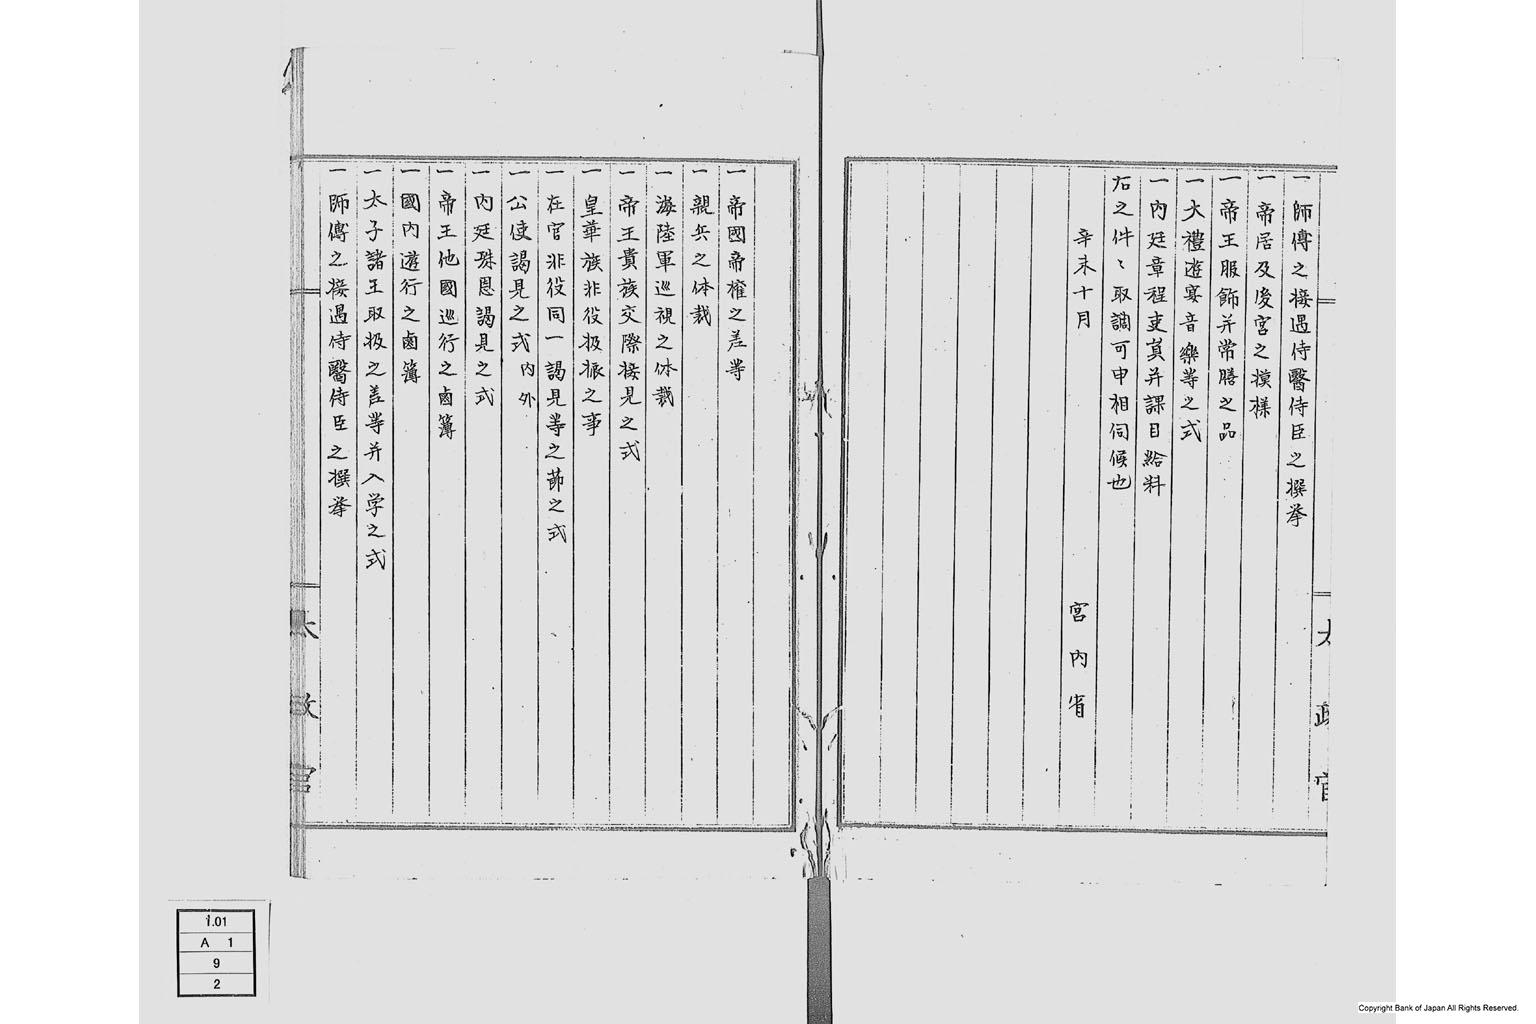 一師傅之接遇侍醫侍臣之撰挙
一帝居及後宮之摸樣
一帝王服飾并常膳之品
一大禮遊宴音樂等之式
一內廷章程吏員并課目給料
右之件〻取調可申相伺候也
辛未十月
宮內省
太政官
一帝國帝權之差等
一親兵之体裁
一海陸軍巡視之体裁
一帝王貴族交際接見之式
一皇華族非役扱振之事
一在官非役同一謁見等之節之式
一公使謁見之式內外
一內廷殊恩謁見之式
一帝王他國巡行之鹵簿
一國內遊行之鹵簿
一太子諸王取扱之差等并入学之式
一師傅之接遇侍醫侍臣之撰挙
太政官
1.01
A 1
9
2
Copyright Bank of Japan All Rights Reserved.